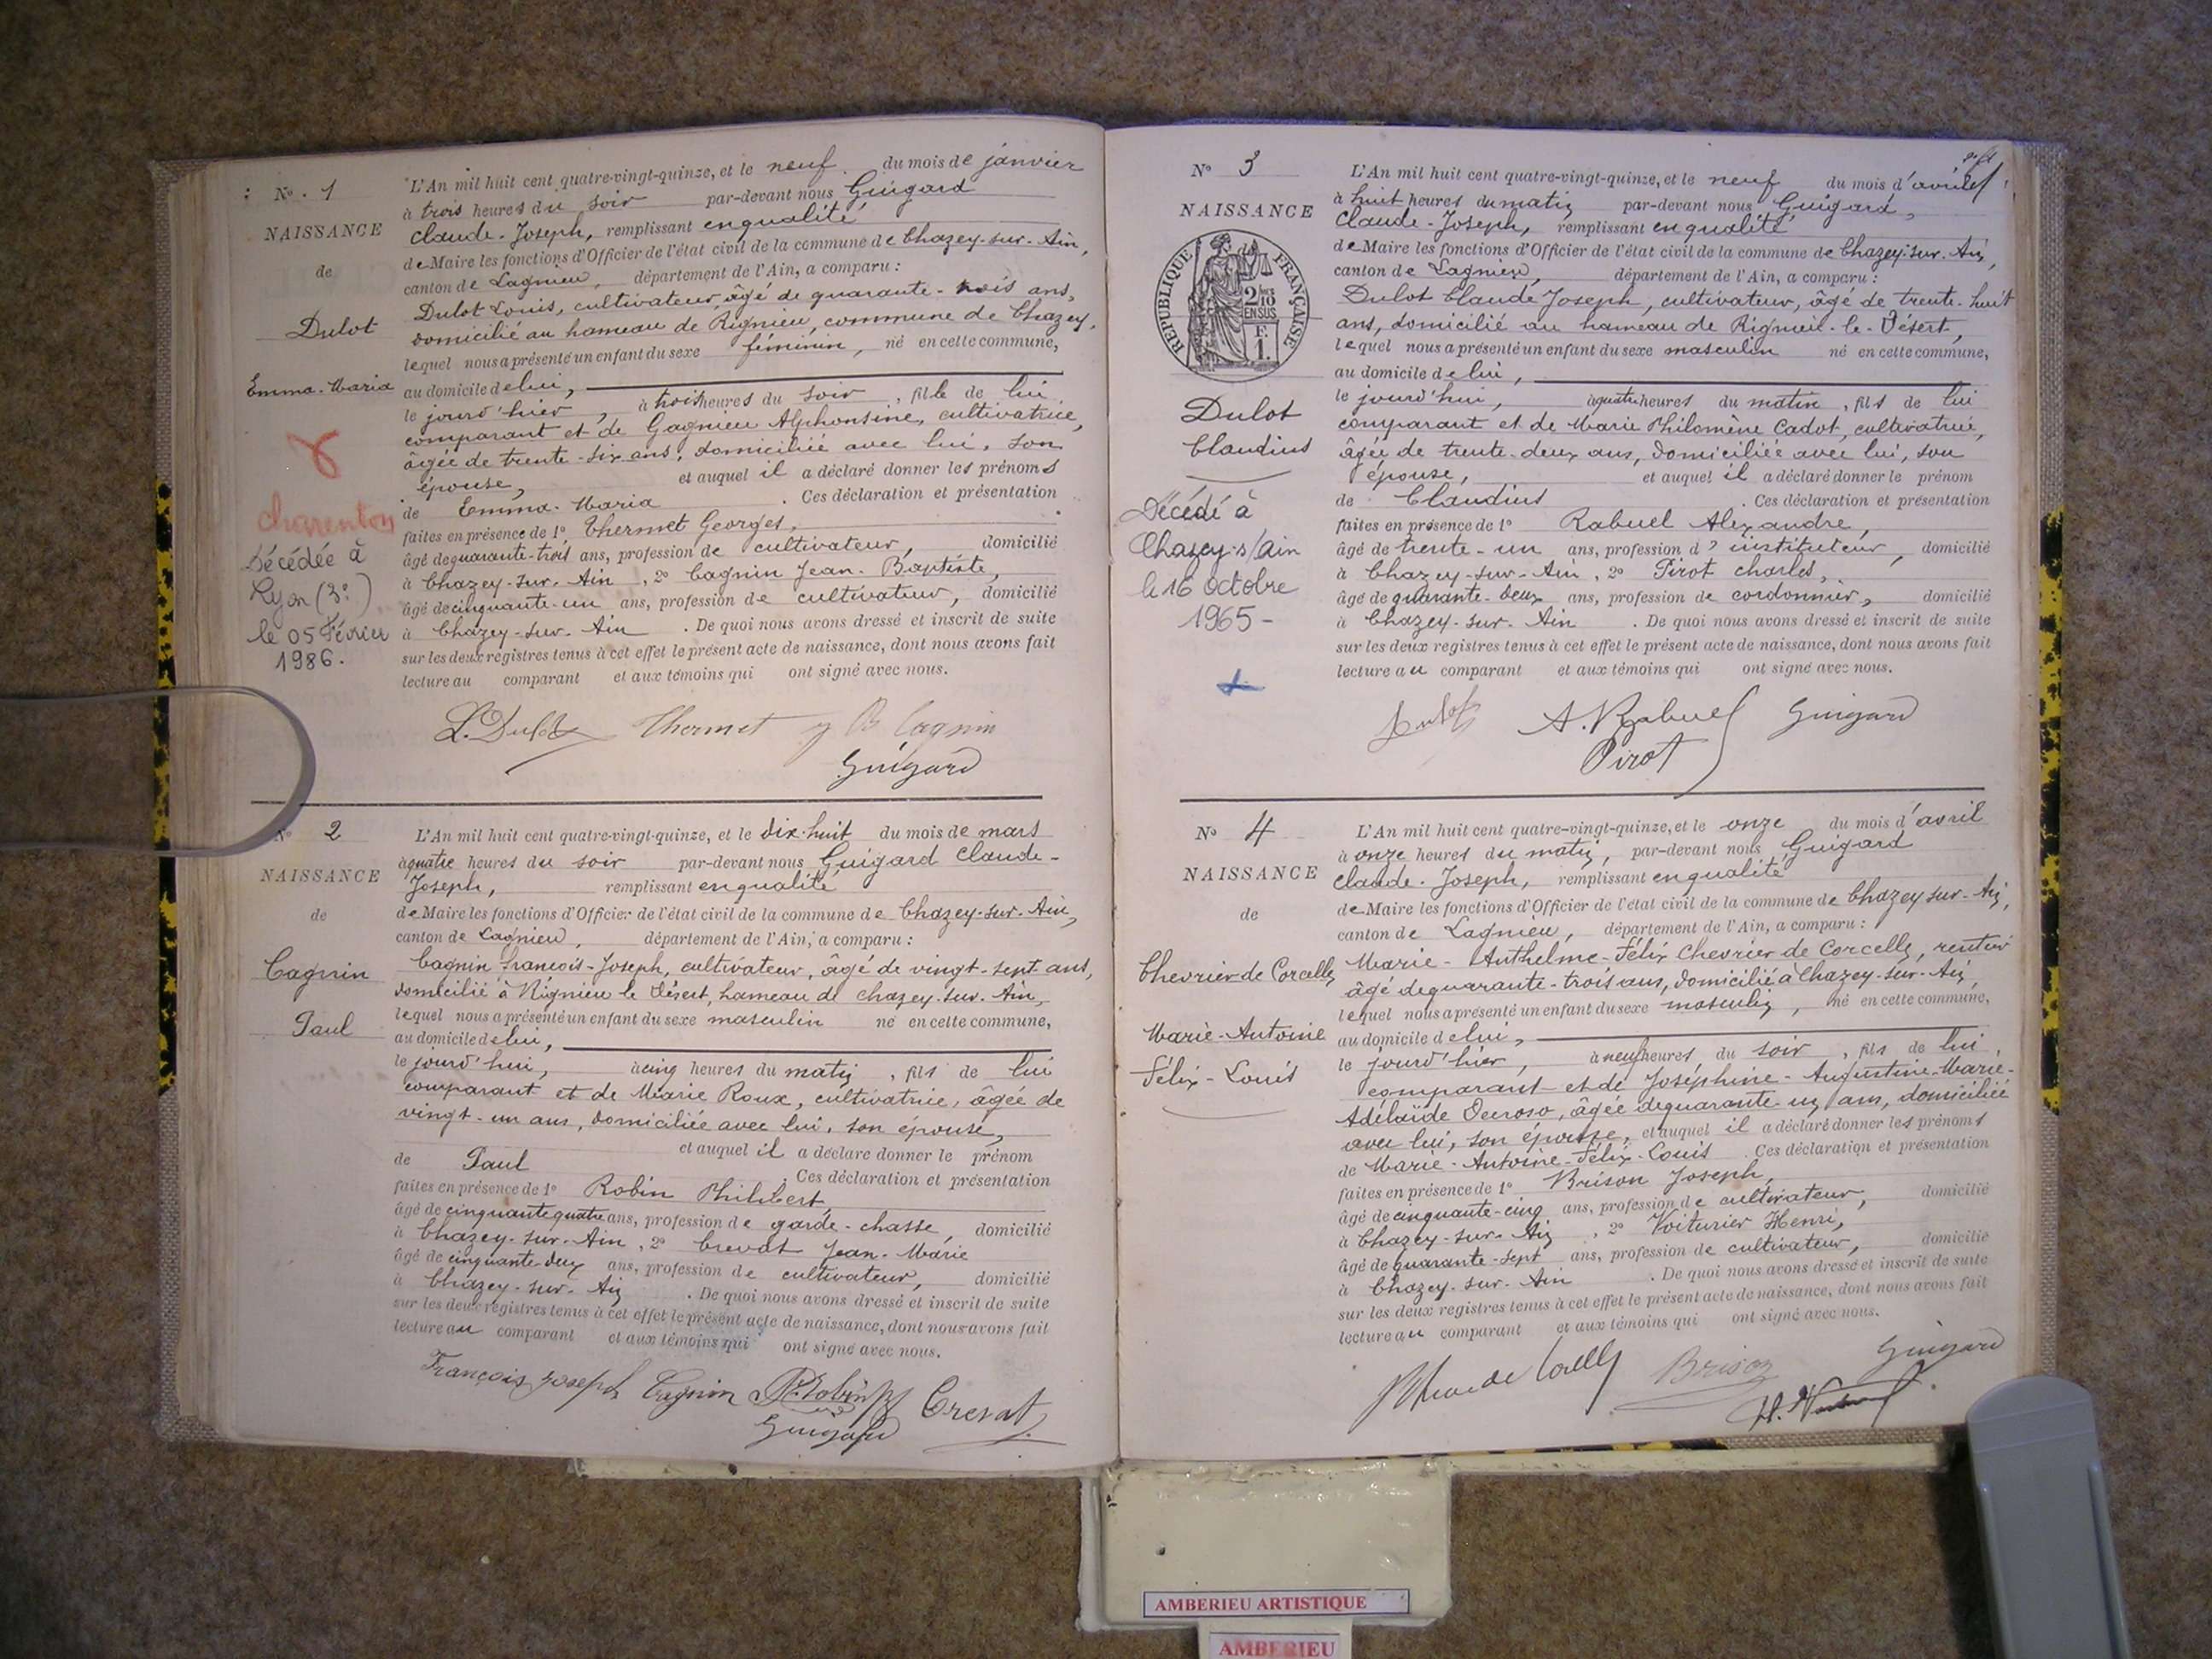 N° 1
NAISSANCE
de
Dulot
Emma-Maria
charenton
Décédée à
Lyon (3e)
le 05 Février
1986.
L'An mil huit cent quatre-vingt-quinze, et le neuf du mois de janvier
à trois heures du soir par-devant nous Guigard
Claude-Joseph, remplissant en qualité
de Maire les fonctions d'Officier de l'état civil de la commune de Chazey-sur-Ain,
canton de Lagnieu, département de l'Ain, a comparu :
Dulot Louis, cultivateur, âgé de quarante-trois ans,
domicilié au hameau de Rignieu, commune de Chazey,
lequel nous a présenté un enfant du sexe féminin, né en cette commune,
au domicile de lui,
le jourd'hier, à trois heures du soir, fille de lui
comparant et de Gagnieu Alphonsine, cultivatrice,
âgée de trente-six ans, domiciliée avec lui, son
épouse, et auquel il a déclaré donner les prénoms
de Emma-Maria. Ces déclaration et présentation
faites en présence de 1° Thermet Georges,
âgé de quarante-trois ans, profession de cultivateur, domicilié
à Chazey-sur-Ain, 2° Cagnin Jean-Baptiste,
âgé de cinquante-un ans, profession de cultivateur, domicilié
à Chazey-sur-Ain. De quoi nous avons dressé et inscrit de suite
sur les deux registres tenus à cet effet le présent acte de naissance, dont nous avons fait
lecture au comparant et aux témoins qui ont signé avec nous.
L. Dulot Thermet J B Cagnin
Guigard
N° 2
NAISSANCE
de
Cagnin
Paul
L'An mil huit cent quatre-vingt-quinze, et le dix-huit du mois de mars
à quatre heures du soir par-devant nous Guigard Claude-
Joseph, remplissant en qualité
de Maire les fonctions d'Officier de l'état civil de la commune de Chazey-sur-Ain,
canton de Lagnieu, département de l'Ain, a comparu :
Cagnin François-Joseph, cultivateur, âgé de vingt-sept ans,
domicilié à Rignieu le Désert, hameau de chazey-sur-Ain,
lequel nous a présenté un enfant du sexe masculin né en cette commune,
au domicile de lui,
le jourd'hui, à cinq heures du matin, fils de lui
comparant et de Marie Roux, cultivatrice, âgée de
vingt-un ans, domiciliée avec lui, son épouse,
et auquel il a déclaré donner le prénom
de Paul. Ces déclaration et présentation
faites en présence de 1° Robin Philibert,
âgé de cinquante quatre ans, profession de garde-chasse, domicilié
à Chazey-sur-Ain, 2° Crevat Jean-Marie
âgé de cinquante-deux ans, profession de cultivateur, domicilié
à Chazey-sur-Ain. De quoi nous avons dressé et inscrit de suite
sur les deux registres tenus à cet effet le présent acte de naissance, dont nous avons fait
lecture au comparant et aux témoins qui ont signé avec nous.
François Joseph Cagnin P. Robin Crevat
Guigard
N° 3
NAISSANCE
RÉPUBLIQUE FRANÇAISE
2/10
EN SUS
F.
1.
Dulot
Claudius
Décédé à
Chazey-s/Ain
le 16 octobre
1965-
L'An mil huit cent quatre-vingt-quinze, et le neuf du mois d'avril
à huit heures du matin par-devant nous Guigard,
Claude-Joseph, remplissant en qualité
de Maire les fonctions d'Officier de l'état civil de la commune de Chazey-sur-Ain,
canton de Lagnieu, département de l'Ain, a comparu :
Dulot Claude Joseph, cultivateur, âgé de trente-huit
ans, domicilié au hameau de Rignieu-le-Désert,
lequel nous a présenté un enfant du sexe masculin né en cette commune,
au domicile de lui,
le jourd'hui, à quatre heures du matin, fils de lui
comparant et de Marie Philomène Cadot, cultivatrice,
âgée de trente-deux ans, domiciliée avec lui, son
épouse, et auquel il a déclaré donner le prénom
de Claudius. Ces déclaration et présentation
faites en présence de 1° Rabuel Alexandre,
âgé de trente-un ans, profession d'instituteur, domicilié
à Chazey-sur-Ain, 2° Pirot charles,
âgé de quarante-deux ans, profession de cordonnier, domicilié
à Chazey-sur-Ain. De quoi nous avons dressé et inscrit de suite
sur les deux registres tenus à cet effet le présent acte de naissance, dont nous avons fait
lecture au comparant et aux témoins qui ont signé avec nous.
Dulot A. Rabuel Guigard
Pirot
N° 4
NAISSANCE
de
Chevrier de Corcelle
Marie-Antoine
Félix-Louis
L'An mil huit cent quatre-vingt-quinze, et le onze du mois d'avril
à onze heures du matin, par-devant nous Guigard
Claude-Joseph, remplissant en qualité
de Maire les fonctions d'Officier de l'état civil de la commune de Chazey sur-Ain,
canton de Lagnieu, département de l'Ain, a comparu :
Marie-Anthelme-Félix Chevrier de Corcelle, rentier
âgé de quarante-trois ans, domicilié à Chazey-sur-Ain,
lequel nous a présenté un enfant du sexe masculin, né en cette commune,
au domicile de lui,
le jourd'hier, à neuf heures du soir, fils de lui
comparant et de Joséphine-Augustine-Marie-
Adélaïde, âgée de quarante-un ans, domiciliée
avec lui, son épouse, et auquel il a déclaré donner les prénoms
de Marie-Antoine-Félix-Louis. Ces déclaration et présentation
faites en présence de 1° Brison Joseph,
âgé de cinquante-cinq ans, profession de cultivateur, domicilié
à Chazey-sur-Ain, 2° Voiturier Henri,
âgé de quarante-sept ans, profession de cultivateur, domicilié
à Chazey-sur-Ain. De quoi nous avons dressé et inscrit de suite
sur les deux registres tenus à cet effet le présent acte de naissance, dont nous avons fait
lecture au comparant et aux témoins qui ont signé avec nous.
Brison Guigard
AMBERIEU ARTISTIQUE
AMBERIEU